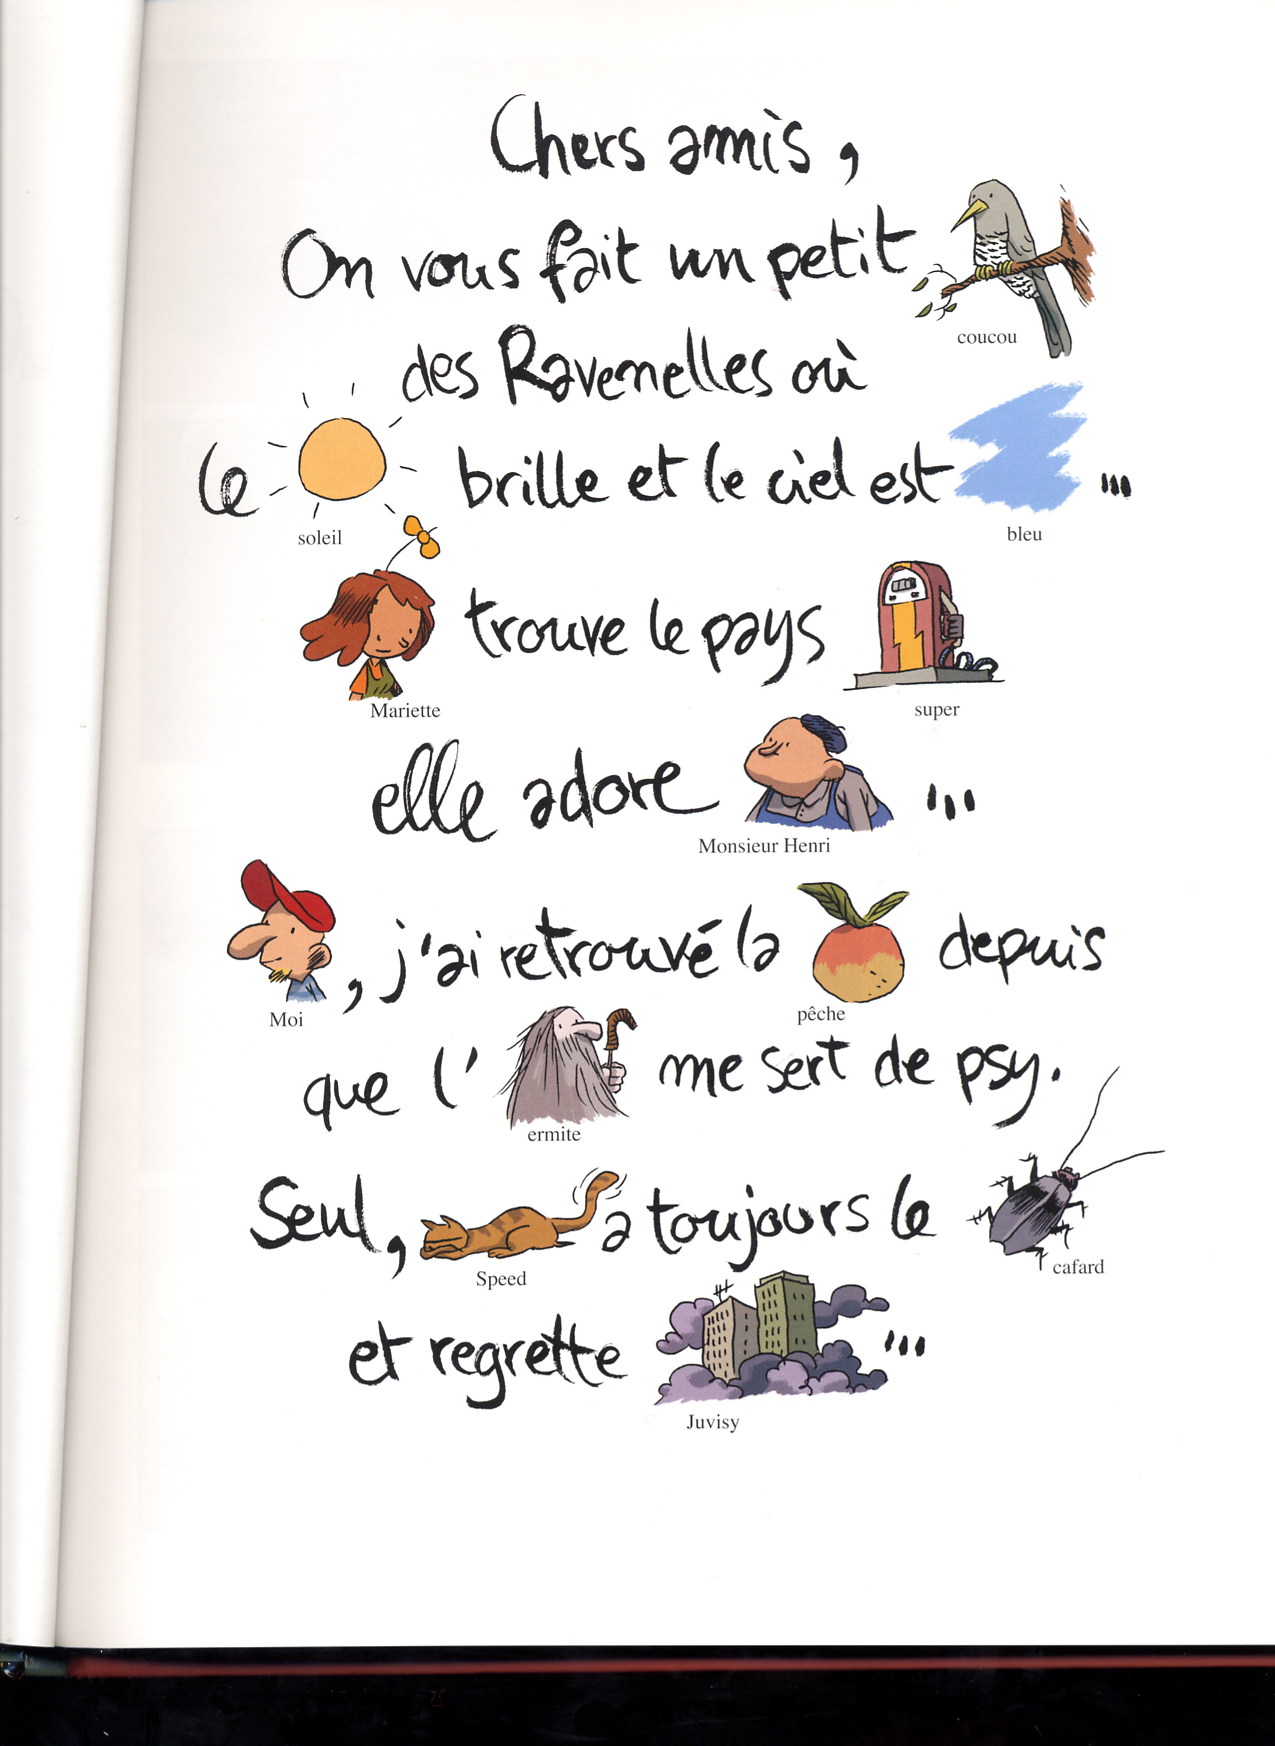 Chers amis,
On vous fait un petit
coucou
des Ravenelles où
le brille et le ciel est ...
soleil
bleu
trouve le pays
Mariette
super
elle adore ...
Monsieur Henri
, j'ai retrouvé la depuis
Moi
pêche
que l' me sert de psy.
ermite
Seul, a toujours le
Speed
cafard
et regrette ...
Juvisy